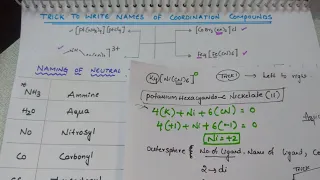 TRICK TO WRITE NAMES OF COORDINATION COMPOUNDS
NAMING OF NEUTRAL
NH3 Ammine
H2O Aqua
NO Nitrosyl
CO Carbonyl
K4[Ni(CN)6]
TRICK
left to right
potassium hexacyanido-C Nickelate (II)
4(K)+Ni+6(CN) = 0
4(+1)+Ni+6(-1) = 0
Ni=+2
Outersphere
No of ligand, Name of ligand,
2→di